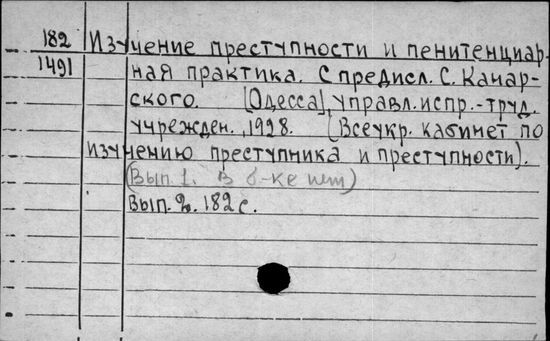 182 Изучение преступности и пенитенциар-
1491 ная практика. С предисл. С. Канар-
ского. [Одесса], управл. испр.-труд.
учрежден., 1928. (Всеукр. кабинет по
изучению преступника и преступности).
(Вып. 1. В б-ке нет)
Вып. 2. 182 с.